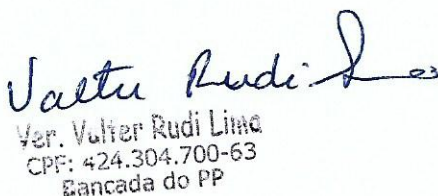 Valter Rudi L
Ver. Valter Rudi Lima
CPF: 424.304.700-63
Bancada do PP